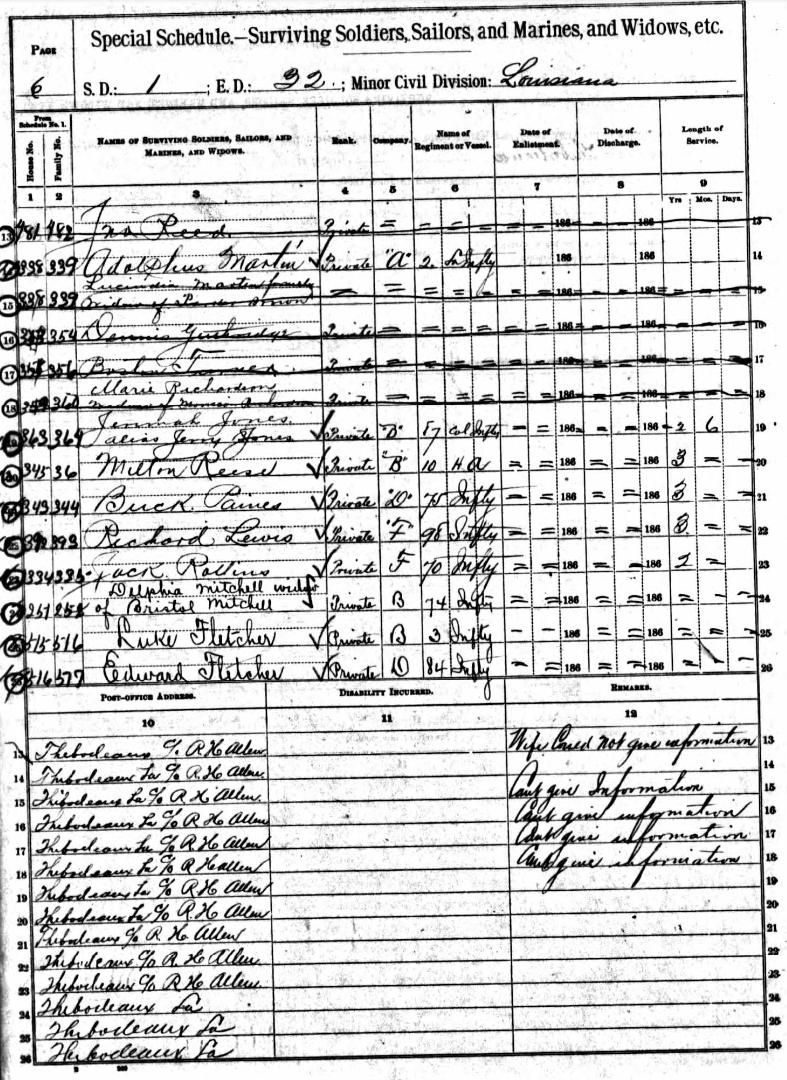 Special Schedule.—Surviving Soldiers, Sailors, and Marines, and Widows, etc.
PAGE
6
S. D.: 1 ; E. D.: 32 ; Minor Civil Division: Louisiana
From Schedule No. 1.
House No. Family No. NAMES OF SURVIVING SOLDIERS, SAILORS, AND MARINES, AND WIDOWS. Rank. Company. Name of Regiment or Vessel. Date of Enlistment. Date of Discharge. Length of Service.
1 2 3 4 5 6 7 8 9
Yrs. Mos. Days.
13 481 482 Jno Reed Private = = = = = 186 = = 186 = = = 13
338 339 Adolphus Martin Private "A" 2 La Infty 186 186 14
15 338 339 Lucindia Martin formerly = = = = = 186 = = 186 = = = 15
Widow of
16 354 Dennis Private = = = = = 186 = = 186 = = = 16
17 356 Boston Private = = = = = 186 = = 186 = = = 17
Marie Richardson
18 360 Widow of Private = = = = = 186 = = 186 = = = 18
Jerimah Jones
363 364 alias Jerry Jones Private "D" 87 Col Infty = = 186 = = 186 2 6 19
345 36 Milton Reese Private "B" 10 H A = = 186 = = 186 3 = = 20
343 344 Buck Paines Private "D" 75 Infty = = 186 = = 186 3 = = 21
392 393 Richard Lewis Private "F" 98 Infty = = 186 = = 186 3 = = 22
334 335 Jack Rollins Private F 70 Infty = = 186 = = 186 2 = 23
Delphia Mitchell widow
257 258 of Bristol Mitchell Private B 74 Infty = = 186 = = 186 = = = 24
515 516 Luke Fletcher Private B 3 Infty - - 186 = = 186 = = = 25
516 517 Edward Fletcher Private D 84 Infty = = 186 = = 186 = - - 26
POST-OFFICE ADDRESS. DISABILITY INCURRED. REMARKS.
10 11 12
13 Thebodeaux c/o R H Allen Wife Coued not give information 13
14 Thibodeaux La c/o R. H Allen 14
15 Thibodeaux La c/o R H Allen Cant give Information 15
16 Thibodeaux La c/o R H Allen Cant give information 16
17 Thebodeaux La c/o R H Allen Cant give information 17
18 Thebodeaux La c/o R H allen Cant give information 18
19 Thebodeaux La c/o R H Allen 19
20 Thebodeaux La c/o R H Allen 20
21 Thebodeaux c/o R. H. Allen 21
22 Thibodeaux c/o R H Allen 22
23 Thebodeaux c/o R. H Allen 23
24 Thebodeaux La 24
25 Thebodeaux La 25
26 Thebodeaux La 26